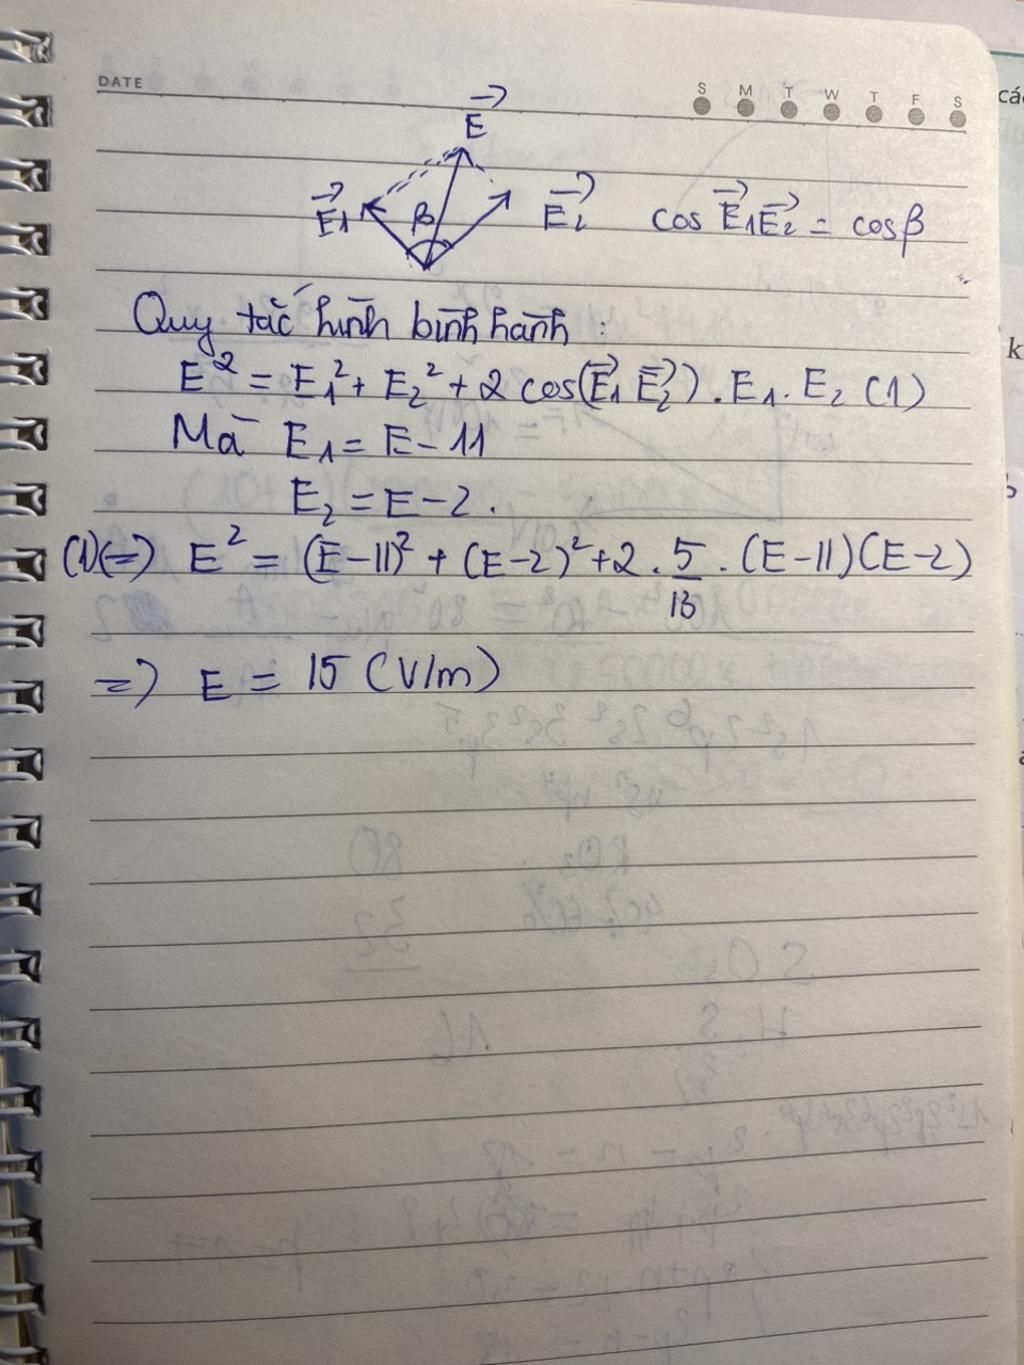 DATE
S M T W T F S
các
E⃗
E⃗₁ β E⃗₂ cos E⃗₁E⃗₂ = cosβ
Quy tắc hình bình hành :
E² = E₁² + E₂² + 2 cos(E⃗₁ E⃗₂) . E₁ . E₂ (1)
Mà E₁ = E - 11
E₂ = E - 2 .
(1)(=) E² = (E - 11)² + (E - 2)² + 2 . 5/13 . (E - 11)(E - 2)
=) E = 15 (V/m)